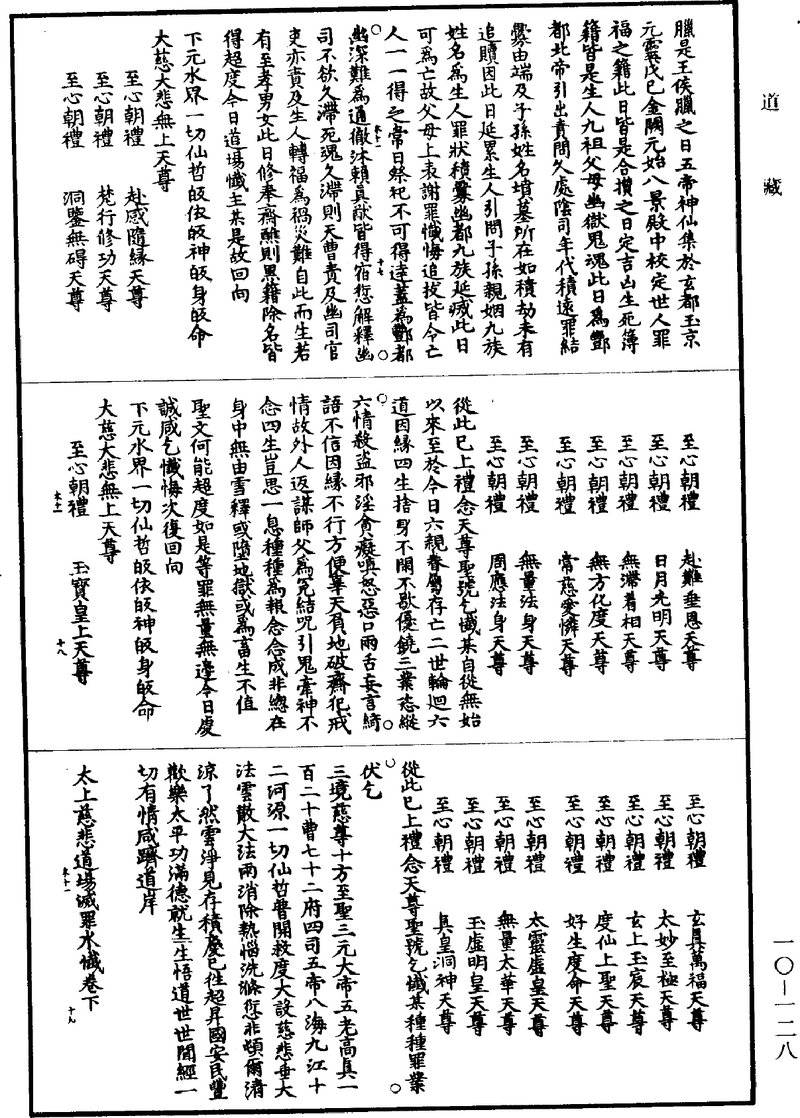 道藏
臘是王侯臘之日五帝神仙集於玄都玉京
元靈戊巳金闕元始八景殿中校定世人罪
福之籍此日皆是合儹之日定吉凶生死簿
籍皆是生人九祖父母幽獄鬼魂此日為酆
都北帝引出責問久處陰司年代積遠罪結
釁由端及子孫姓名墳墓所在如積劫未有
追贖因此日延累生人引問子孫親姻九族
姓名為生人罪狀積釁幽都九族延滅此日
可為亡故父母上表謝罪懺悔追拔皆令亡
人一一得之常日祭祀不可得達蓋為酆都
幽深難為通徹沐賴真猷皆得宿愆解釋幽
司不欲久滯死魂久滯則天曹責及幽司官
吏亦責及生人轉福為禍災難自此而生若
有至孝男女此日修奉齋醮則黑籍除名皆
得超度今日道場懺主某是故回向
下元水界一切仙哲皈依皈神皈身皈命
大慈大悲無上天尊
至心朝禮 赴感隨緣天尊
至心朝禮 梵行修功天尊
至心朝禮 洞鑒無碍天尊
至心朝禮 赴難垂恩天尊
至心朝禮 日月光明天尊
至心朝禮 無滯着相天尊
至心朝禮 無方化度天尊
至心朝禮 常慈愛憐天尊
至心朝禮 無量法身天尊
至心朝禮 周應法身天尊
從此已上禮念天尊聖號乞懺某自從無始
以來至於今日六親眷屬存亡二世輪迴六
道因緣四生捨身不閑不歇優饒三業恣縱
六情殺盜邪淫貪癡嗔怒惡口兩舌妄言綺
語不信因緣不行方便辜天負地破齋犯戒
情故外人返謀師父為冤結呪引鬼牽神不
念四生豈思一息種種為報念念成非總在
身中無由雪釋或墮地獄或為畜生不值
聖文何能超度如是等罪無量無邊今日虔
誠咸乞懺悔次復回向
下元水界一切仙哲皈依皈神皈身皈命
大慈大悲無上天尊
至心朝禮 玉寶皇上天尊
十八
至心朝禮 玄真萬福天尊
至心朝禮 太妙至極天尊
至心朝禮 玄上玉宸天尊
至心朝禮 度仙上聖天尊
至心朝禮 好生度命天尊
至心朝禮 太靈虛皇天尊
至心朝禮 無量太華天尊
至心朝禮 玉虛明皇天尊
至心朝禮 真皇洞神天尊
從此已上禮念天尊聖號乞懺某種種罪業
伏乞
三境慈尊十方至聖三元大帝五老高真一
百二十曹七十二府四司五帝八海九江十
二河源一切仙哲普開救度大設慈悲垂大
法雲散大法雨消除熱惱洗滌愆非頓爾清
涼了然雲淨見存積慶已往超昇國安民豐
歡樂太平功滿德就生生悟道世世聞經一
切有情咸躋道岸
太上慈悲道場滅罪水懺卷下
十九
一〇—一二八